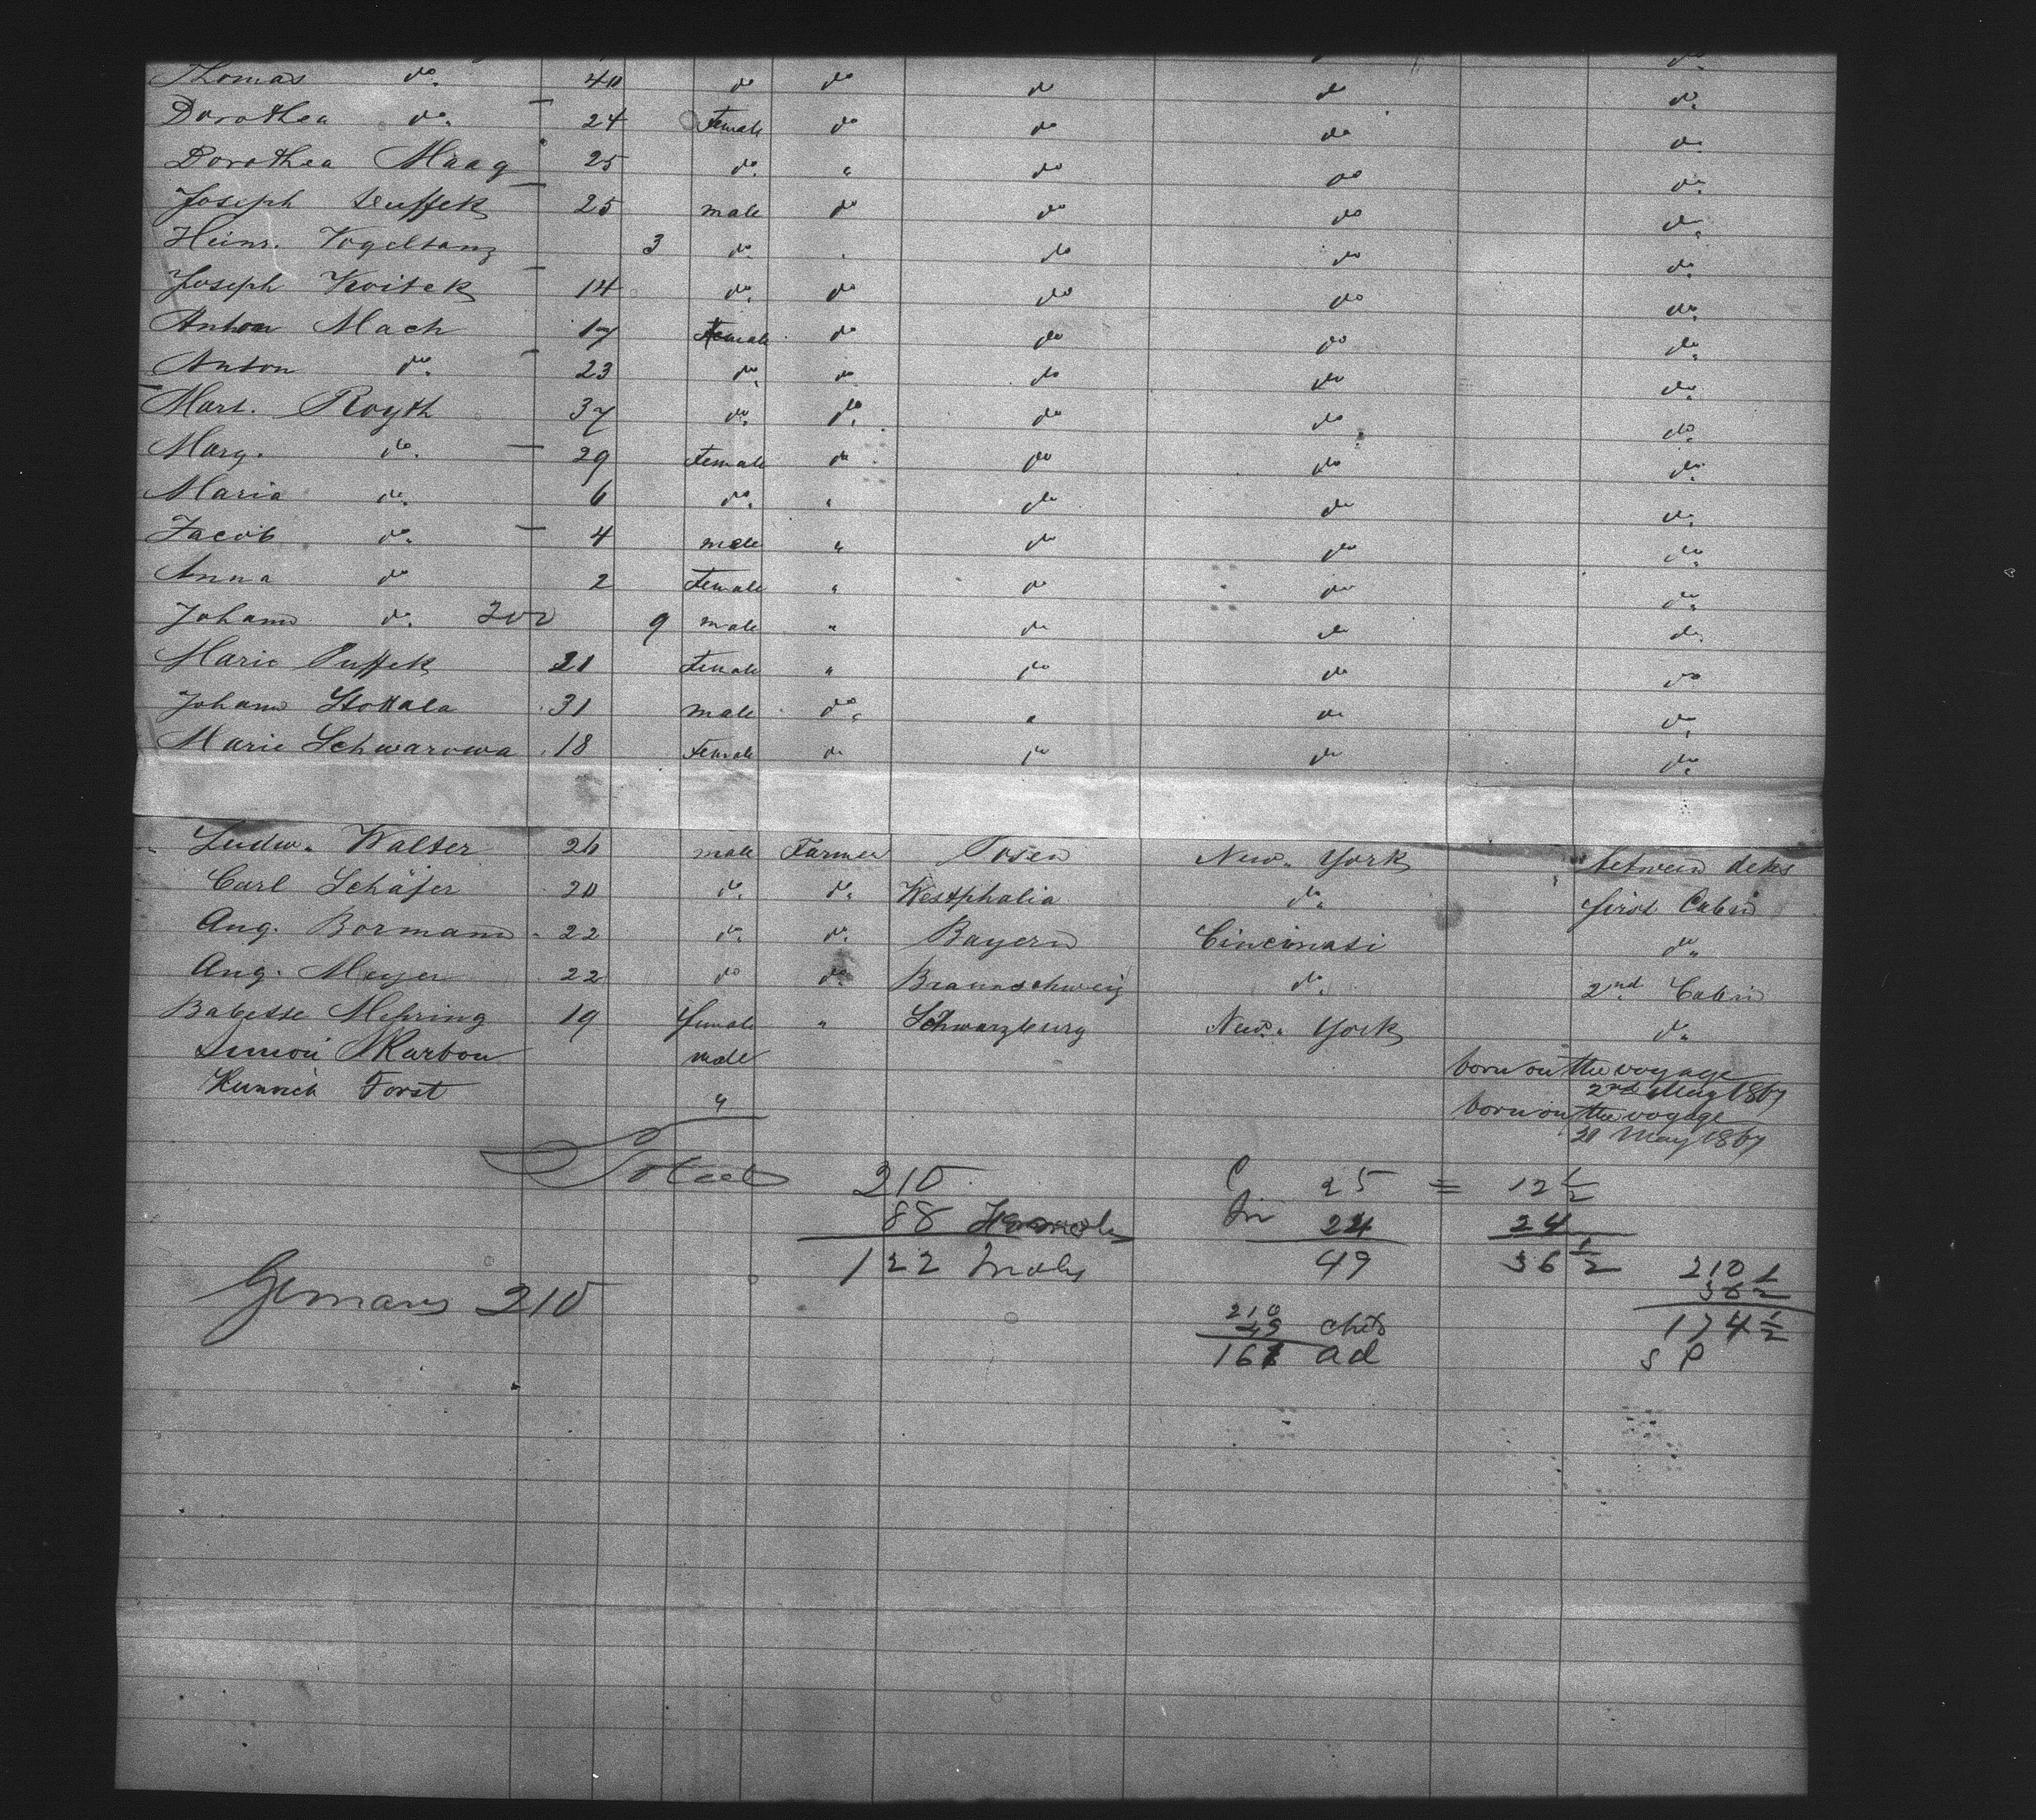 Thomas do. 40 do do do do do.
Dorothea do. 24 Female do do do do.
Dorothea Maag 25 do. " do do do.
Joseph 25 male do do do do.
Heinr. Vogeltanz 3 do. . do do do.
Joseph Kvitek 14 do. do do do do.
Anton Mach 17 Female do do do do.
Anton do. 23 do. do. do do do.
Mart. Royth 37 do. do. do do do.
Marg. do. 29 Female do do do do.
Maria do. 6 do. " do do do.
Jacob do. 4 male " do do do.
Anna do 2 Female " do do do.
Johann do. 200 9 male " do do do.
Marie Puffek 21 Female " do do do
Johann 31 male do. " do do.
Marie Schwarowa 18 Female do do do do.
Ludw. Walter 26 male Farmer Posen New-York between deks
Carl Schäfer 20 do. do. Westphalia do. first Cabin
Aug. Bormann 22 do. do. Bayern Cincinnati do.
Aug. Meyer 22 do do. Braunschweig do. 2nd Cabin
Babette Mehring 19 female " Schwarzburg New-York do.
Simon Skarbou male born on the voyage
2nd May 1867
Heinrich Forst " born on the voyage
21 May 1867
Total 210 C 25 = 12 1/2
88 Females In 24 24
122 Males 49 36 1/2 210
36 1/2
Germans 210 174 1/2
210 S P
49 chds
161 ad